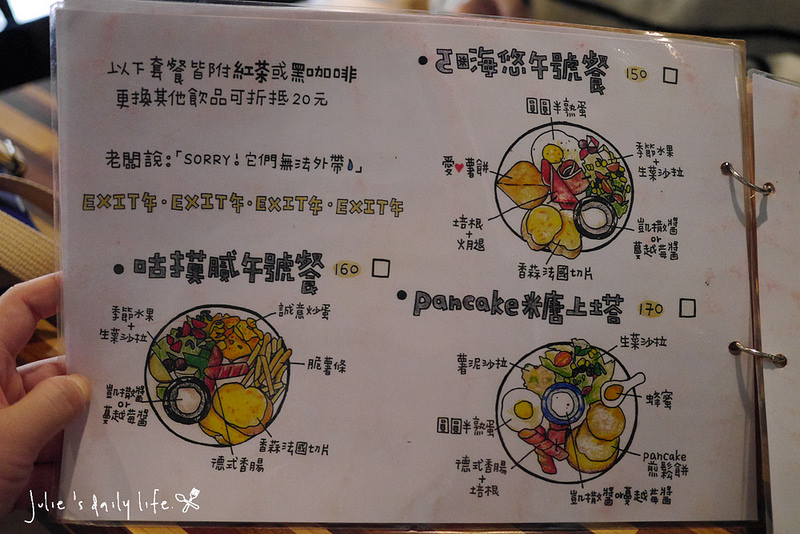 以下套餐皆附紅茶或黑咖啡
更換其他飲品可折抵20元
老闆說:「SORRY!它們無法外帶」
EXIT年·EXIT年·EXIT年·EXIT年
咕摸膩午號餐 160
季節水果
+
生菜沙拉
誠意炒蛋
脆薯條
凱撒醬
or
蔓越莓醬
香蒜法國切片
德式香腸
海悠午號餐 150
圓圓半熟蛋
愛♥薯餅
季節水果
+
生菜沙拉
培根
+
火腿
凱撒醬
or
蔓越莓醬
香蒜法國切片
pancake米唐上塔 170
生菜沙拉
薯泥沙拉
蜂蜜
圓圓半熟蛋
pancake
煎鬆餅
德式香腸
+
培根
凱撒醬or蔓越莓醬
Julie's daily life.